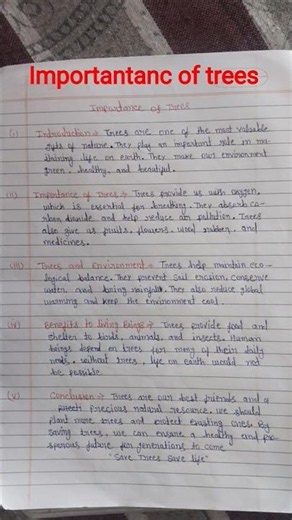 Importantanc of trees
Importance of Trees
(i) Introduction → Trees are one of the most valuable
gifts of nature. They play an important role in ma-
intaining life on earth. They make our environment
green, healthy, and beautiful.
(ii) Importance of Trees → Trees provide us with oxygen,
which is essential for breathing. They absorb ca-
rbon dioxide and help reduce air pollution. Trees
also give us fruits, flowers, wood, rubber, and
medicines.
(iii) Trees and Environment → Trees help maintain eco-
logical balance. They prevent soil erosion, conserve
water, and bring rainfall. They also reduce global
warming and keep the environment cool.
(iv) Benefits to living Beings → Trees provide food and
shelter to birds, animals, and insects. Human
beings depend on trees for many of their daily
needs. Without trees, life on earth would not
be possible.
(v) Conclusion → Trees are our best friends and a
precious natural resource. We should
plant more trees and protect existing ones. By
saving trees, we can ensure a healthy and pro-
sperous future for generations to come
"Save Trees Save life"